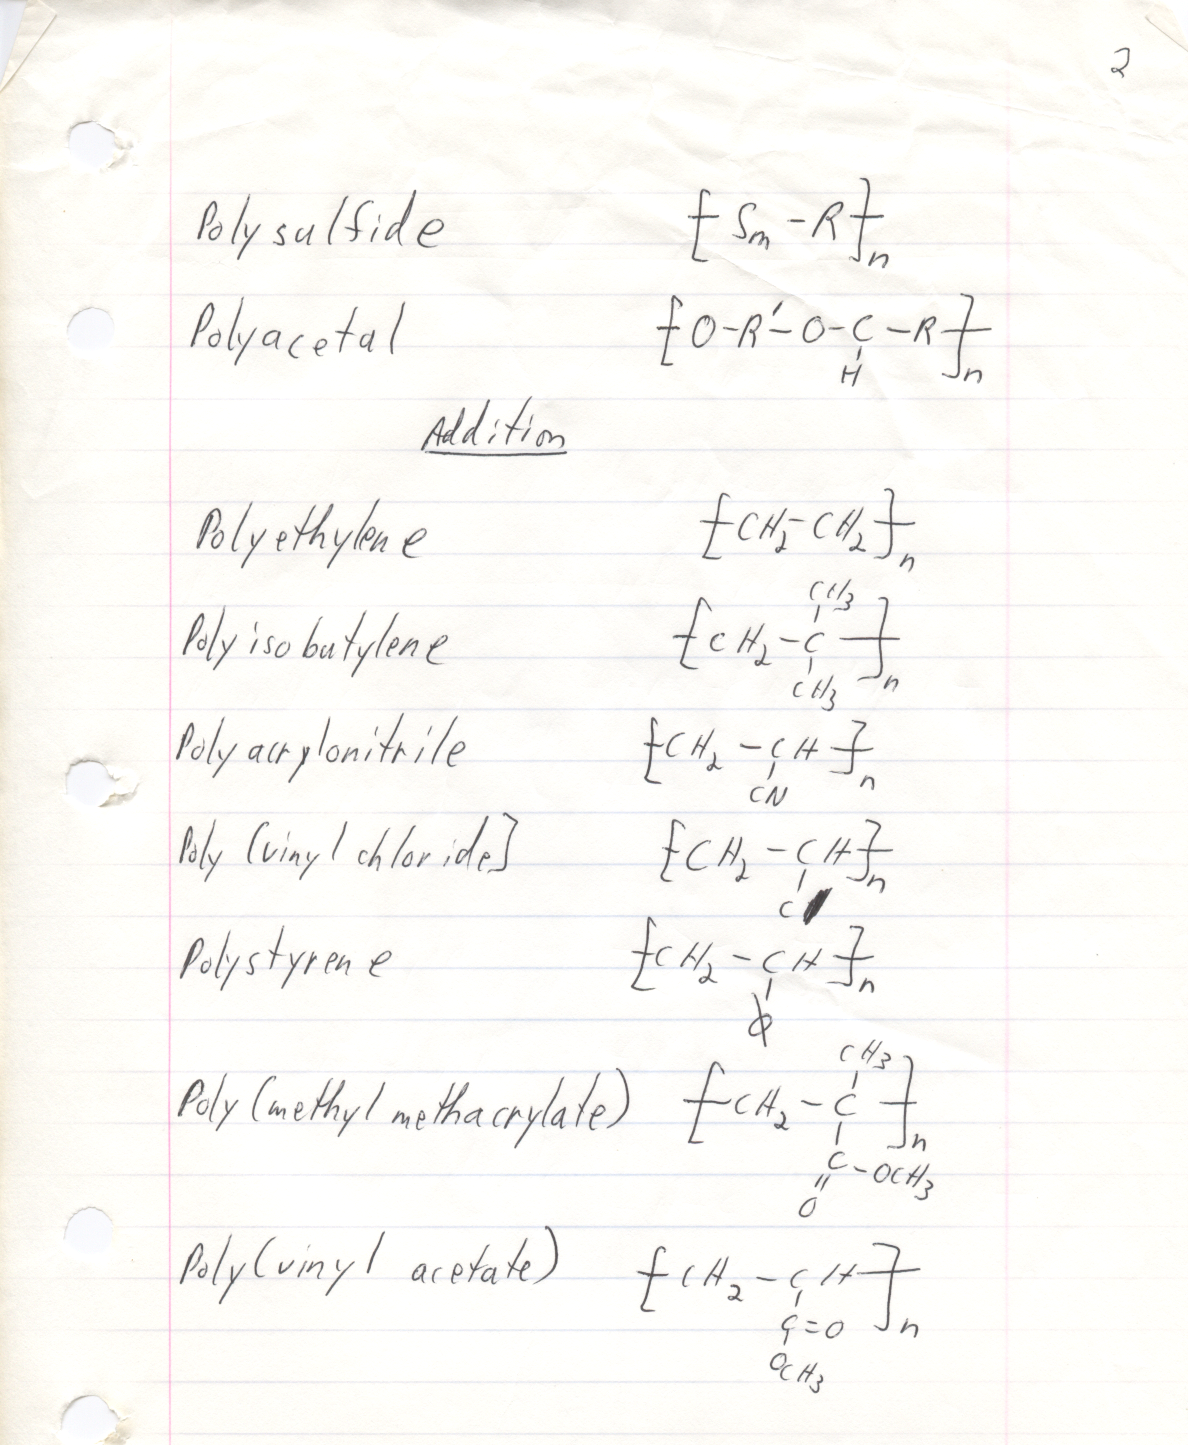 2
Polysulfide [Sm-R]n
Polyacetal [O-R'-O-C-R]n
H
Addition
Polyethylene [CH2-CH2]n
CH3
Polyisobutylene [CH2-C]n
CH3
Polyacrylonitrile [CH2-CH]n
CN
Poly (vinyl chloride] [CH2-CH]n
C
Polystyrene [CH2-CH]n
ϕ
CH3
Poly (methyl methacrylate) [CH2-C]n
C-OCH3
O
Poly (vinyl acetate) [CH2-CH]n
C=O
OCH3